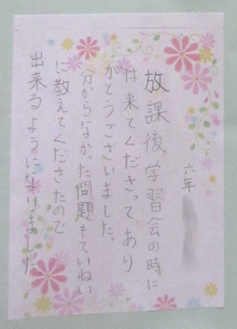 六年
放課後学習会の時に
は来てくださって、あり
がとうございました。
分からなかった問題もていねい
に教えてくださたので
出来るようになりました